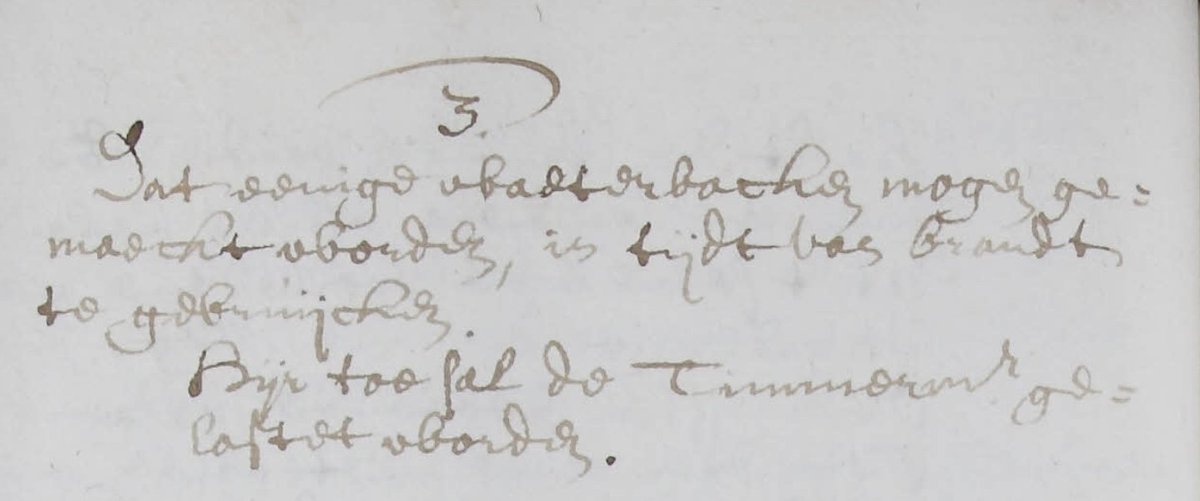 3.
Dat eenige waeterbacken mogen ge=
maeckt worden, in tijdt van brandt
te gebruijcken
Hijr toe sal de Timmermr ge=
lastet worden.